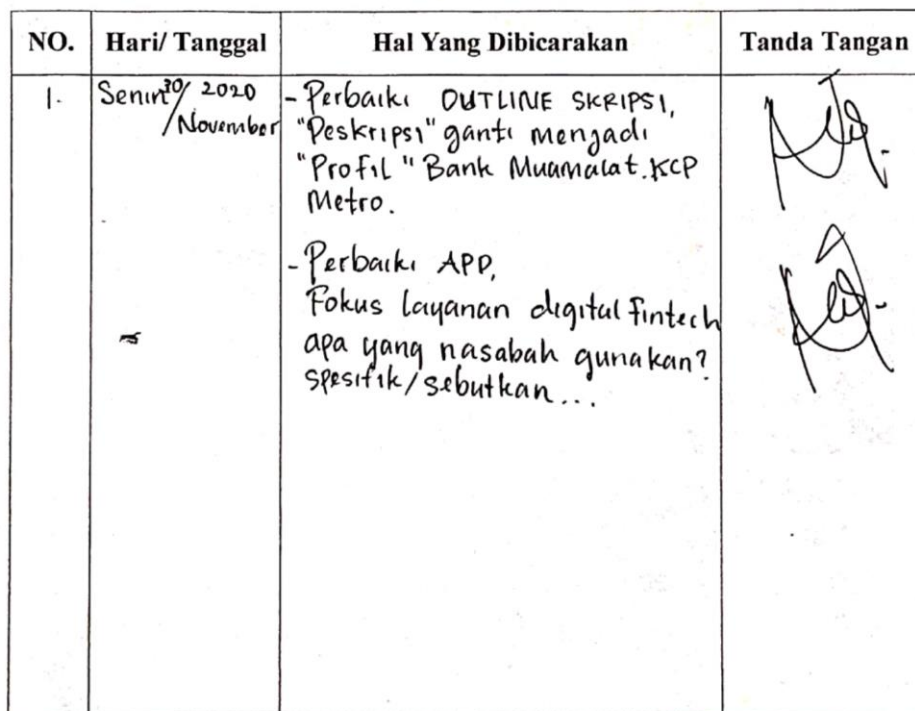 NO. Hari/ Tanggal Hal Yang Dibicarakan Tanda Tangan
1. Senin 30/ 2020 - Perbaiki OUTLINE SKRIPSI,
/November "Deskripsi" ganti menjadi
"Profil" Bank Muamalat.KCP
Metro.
- Perbaiki APD,
Fokus layanan digital fintech
apa yang nasabah gunakan?
spesifik/sebutkan...